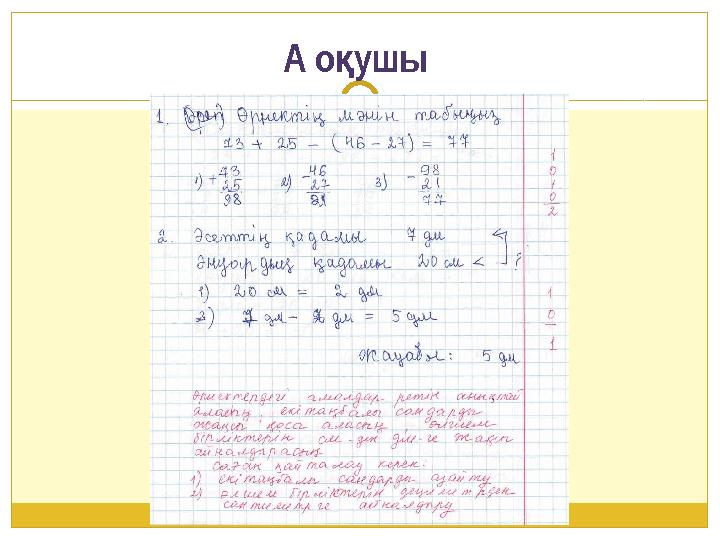 А оқушы
1. Өрнектің мәнін табыңыз
73 + 25 - (46 - 27) = 77
1) + 73 25 98 2) - 46 27 21 3) - 98 21 77
1
0
1
0
2
2. Әсеттің қадамы 7 дм
Әнуардың қадамы 20 см < ?
1) 20 см = 2 дм
2) 7 дм - 2 дм = 5 дм
1
0
1
Жауабы: 5 дм
Өрнектердегі амалдар ретін анықтай
аласың, екі таңбалы сандарды
жақсы қоса аласың, өлшем
бірліктерін см-ден дм-ге жақсы
айналдырасың
Саған қайталау керек:
1) екі таңбалы сандарды азайту
2) өлшем бірліктерін дециметрден
сантиметрге айналдыру